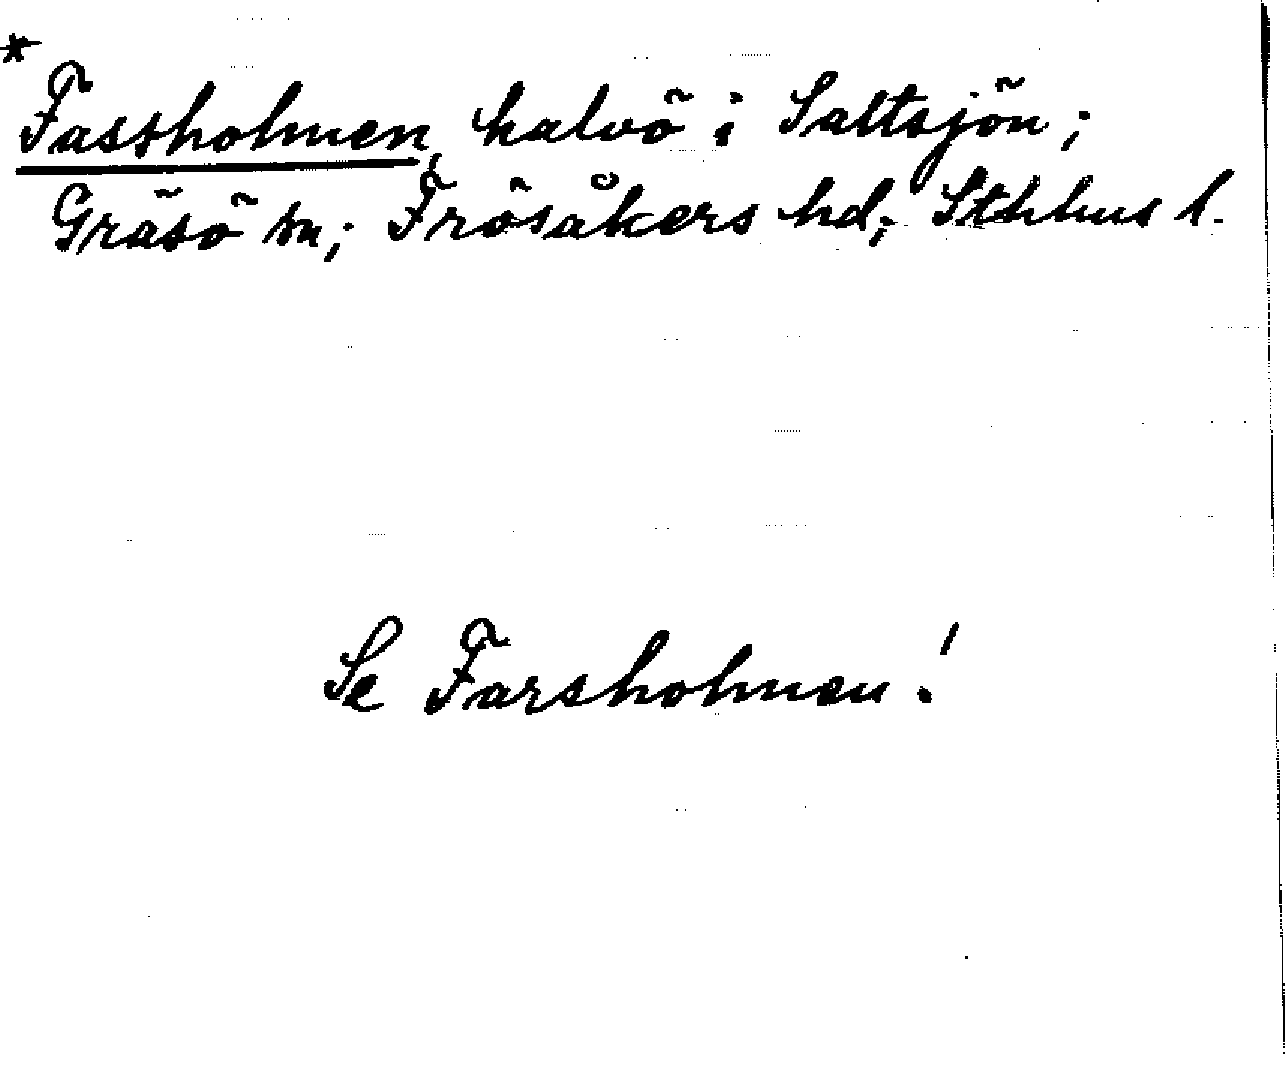 *
Fassholmen, halvö i Saltsjön;
Gräsö sn; Frösåkers hd; Sthlms l.
Se Farsholmen!